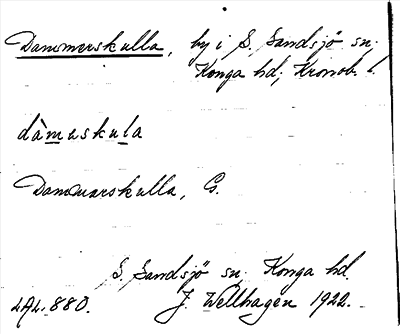 Dammerskulla, by i S. Sandsjö sn,
Konga hd, Kronob. l.
dàmaskula
Dammarskulla, G.
S. Sandsjö sn, Konga hd
LAL. 880. J. Wellhagen 1922.